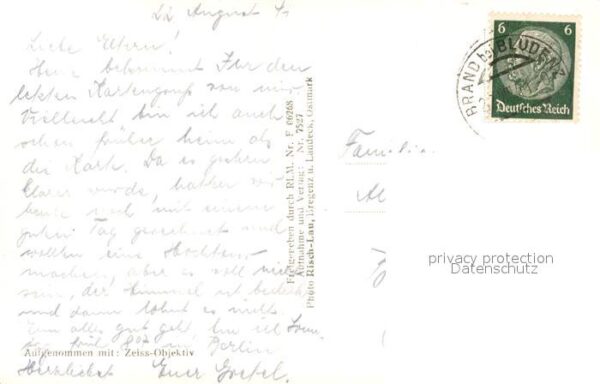 22 August 4
Liebe Eltern!
Heute bekommt Ihr den
letzten Kartengruß von mir
Vielleicht bin ich auch
schon früher heim als
die Karte. Da es gestern
klarer wurde, hatten wir
heute noch mit einem
guten Tag gerechnet und
wollten eine Hochtour
machen, aber es soll nicht
sein, der Himmel ist bedeckt
und dann lohnt es nicht.
Wenn alles gut geht, bin ich
so früh 8 in Berlin
Herzlichst Eure Gretel.
Aufgenommen mit: Zeiss-Objektiv
Freigegeben durch RLM. Nr. F 06268
Aufnahme und Verlag: Nr. 7527
Photo Risch-Lau, Bregenz u. Landeck, Ostmark
Familie
6 6
Deutsches Reich
BRAND bei BLUDENZ
privacy protection
Datenschutz